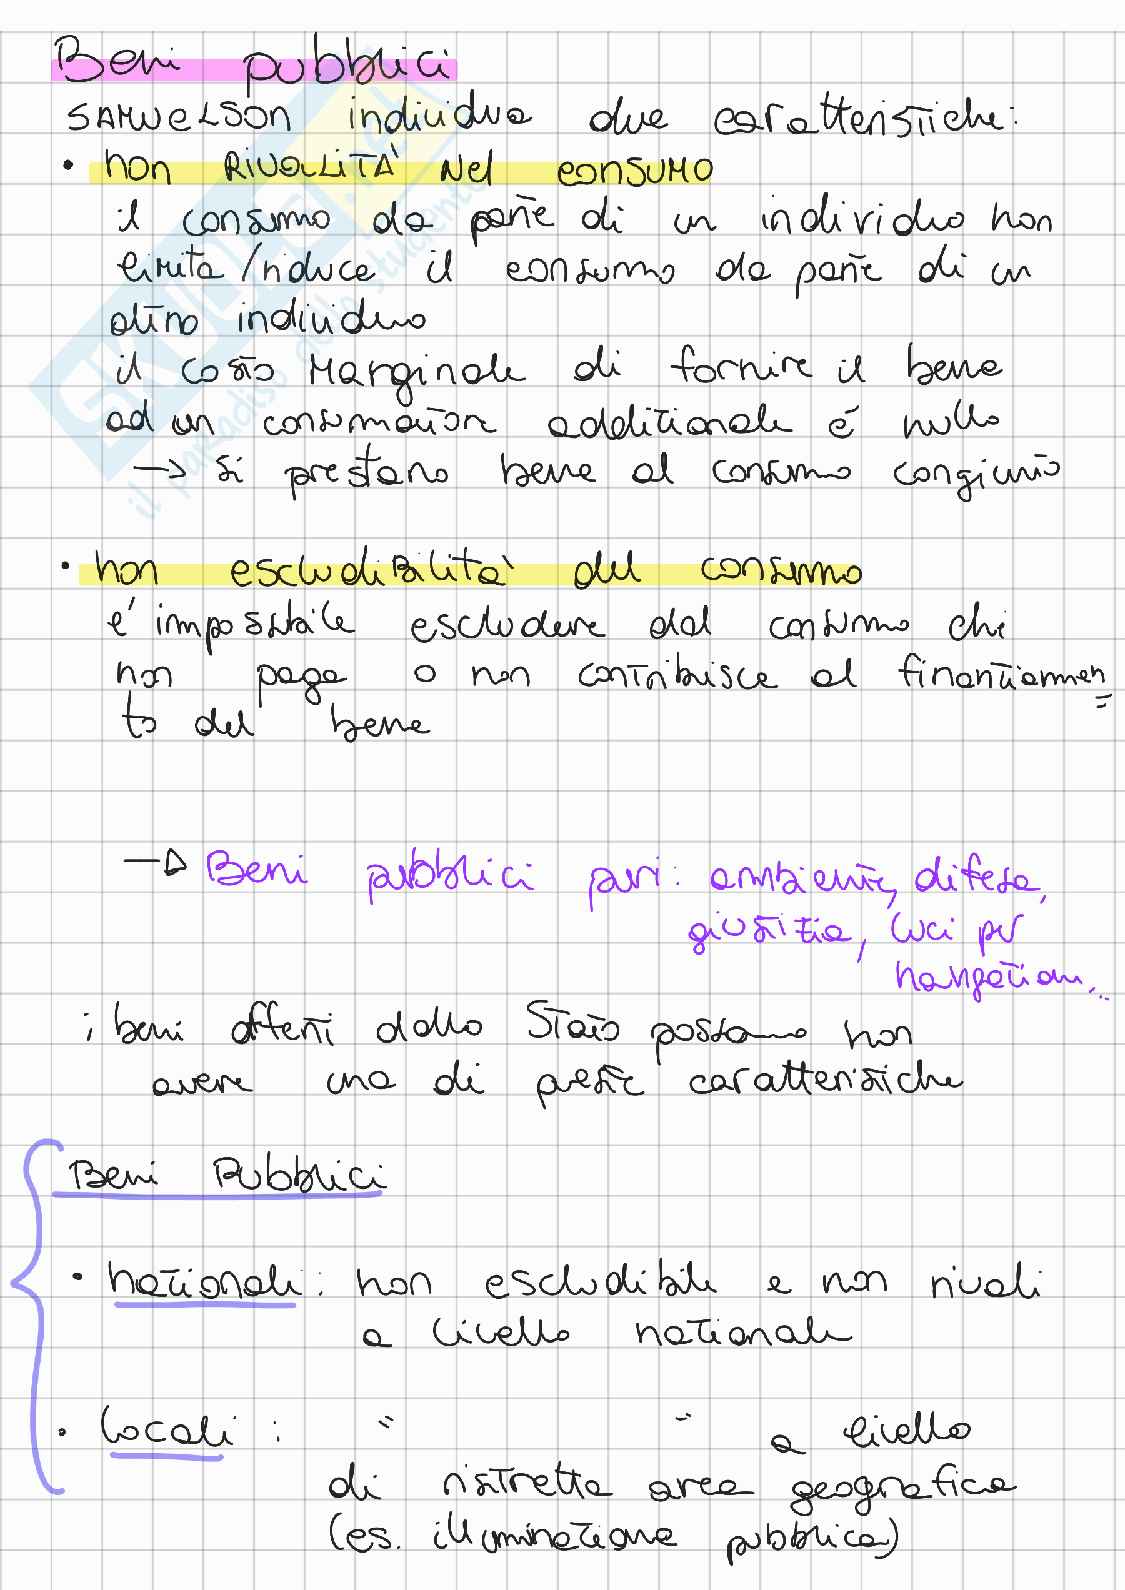 Beni pubblici
SAMUELSON individua due caratteristiche:
• non RIVALLITÀ Nel consumo
il consumo da parte di un individuo non
limita/riduce il consumo da parte di un
altro individuo
il costo Marginale di fornire il bene
ad un consumatore additionale é nullo
→ si prestano bene al consumo congiunto
• non escludibilità del consumo
e' impossibile escludere dal consumo chi
non paga o non contribuisce al finanziamen=
to del bene
→ Beni pubblici puri: ambiente, difesa,
giustizia, luci per
navigazione...
i beni offerti dallo Stato possono non
avere una di queste caratteristiche
Beni Pubblici
• nazionali: non escludibili e non rivali
a livello nazionale
• locali: " " a livello
di ristretta area geografica
(es. illuminazione pubblica)
SKUOLA.net
il paradiso dello studente